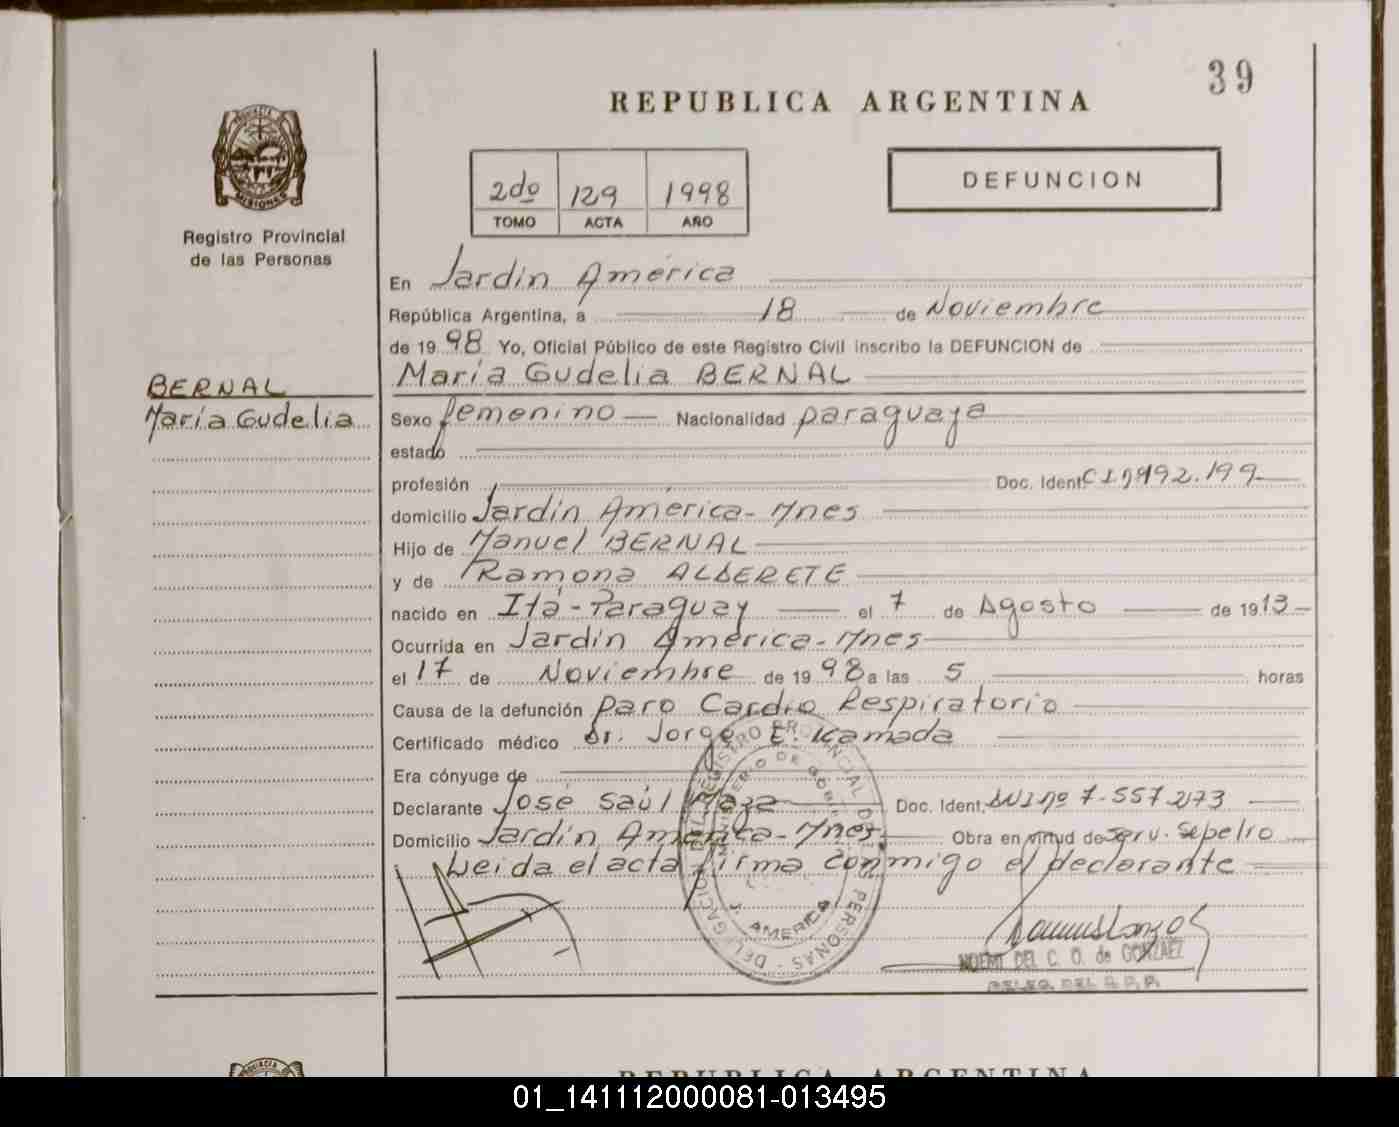 39
REPUBLICA ARGENTINA
PROVINCIA DE
MISIONES
Registro Provincial
de las Personas
2do 129 1998
TOMO ACTA AÑO
DEFUNCION
En Jardín América
República Argentina, a 18 de Noviembre
de 1998 Yo, Oficial Público de este Registro Civil inscribo la DEFUNCION de
BERNAL
María Gudelia
María Gudelia BERNAL
Sexo femenino Nacionalidad paraguaya
estado
profesión Doc. Ident.
domicilio Jardín América - Mnes
Hijo de Manuel BERNAL
y de Ramona ALDERETE
nacido en Itá - Paraguay el 7 de Agosto de 1913
Ocurrida en Jardín América - Mnes
el 17 de Noviembre de 1998 a las 5 horas
Causa de la defunción Paro Cardio Respiratorio
Certificado médico Dr. Jorge E. Kamada
Era cónyuge de
Declarante José Saúl Doc. Ident. DNI nº 7.557.273
Domicilio Jardín América - Mnes. Obra en virtud de Serv. Sepelio
Leída el acta firma conmigo el declarante
REGISTRO PROVINCIAL DE PERSONAS - DELEGACION
MINISTERIO DE GOBI
J. AMERICA
NOEMI DEL C. O. de GONZALEZ
DELEG. DEL R. P. P.
REPUBLICA ARGENTINA
01_141112000081-013495